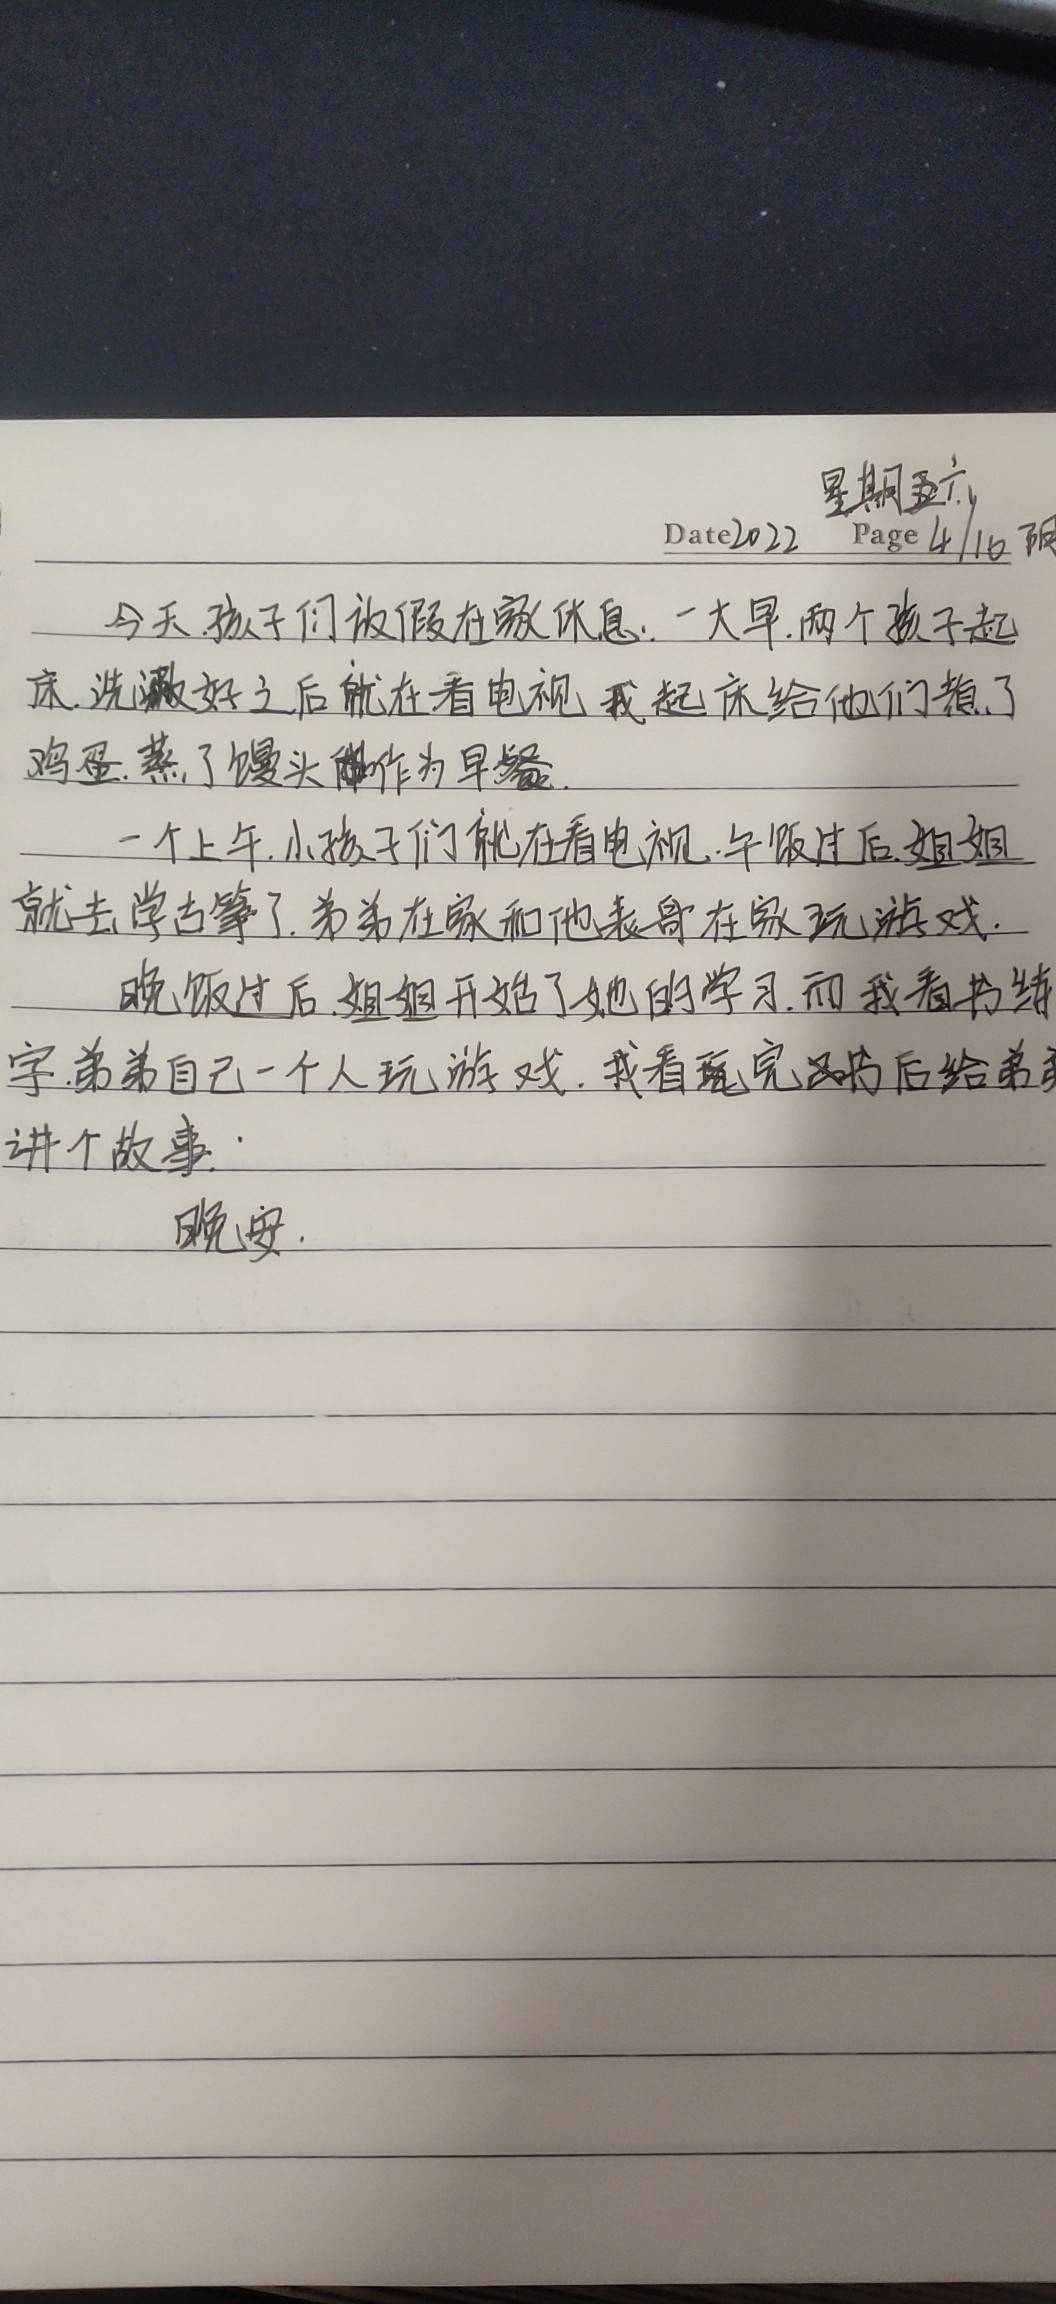 星期六
Date 2022 Page 4/16 阴
今天.孩子们放假在家休息.一大早.两个孩子起
床.洗漱好之后就在看电视 我起床给他们煮了
鸡蛋.蒸了馒头 作为早餐.
一个上午.小孩子们就在看电视.午饭过后.姐姐
就去学古筝了.弟弟在家和他表哥在家玩游戏.
晚饭过后.姐姐开始了她的学习.而我看书练
字.弟弟自己一个人玩游戏.我看完书后给弟弟
讲个故事.
晚安.